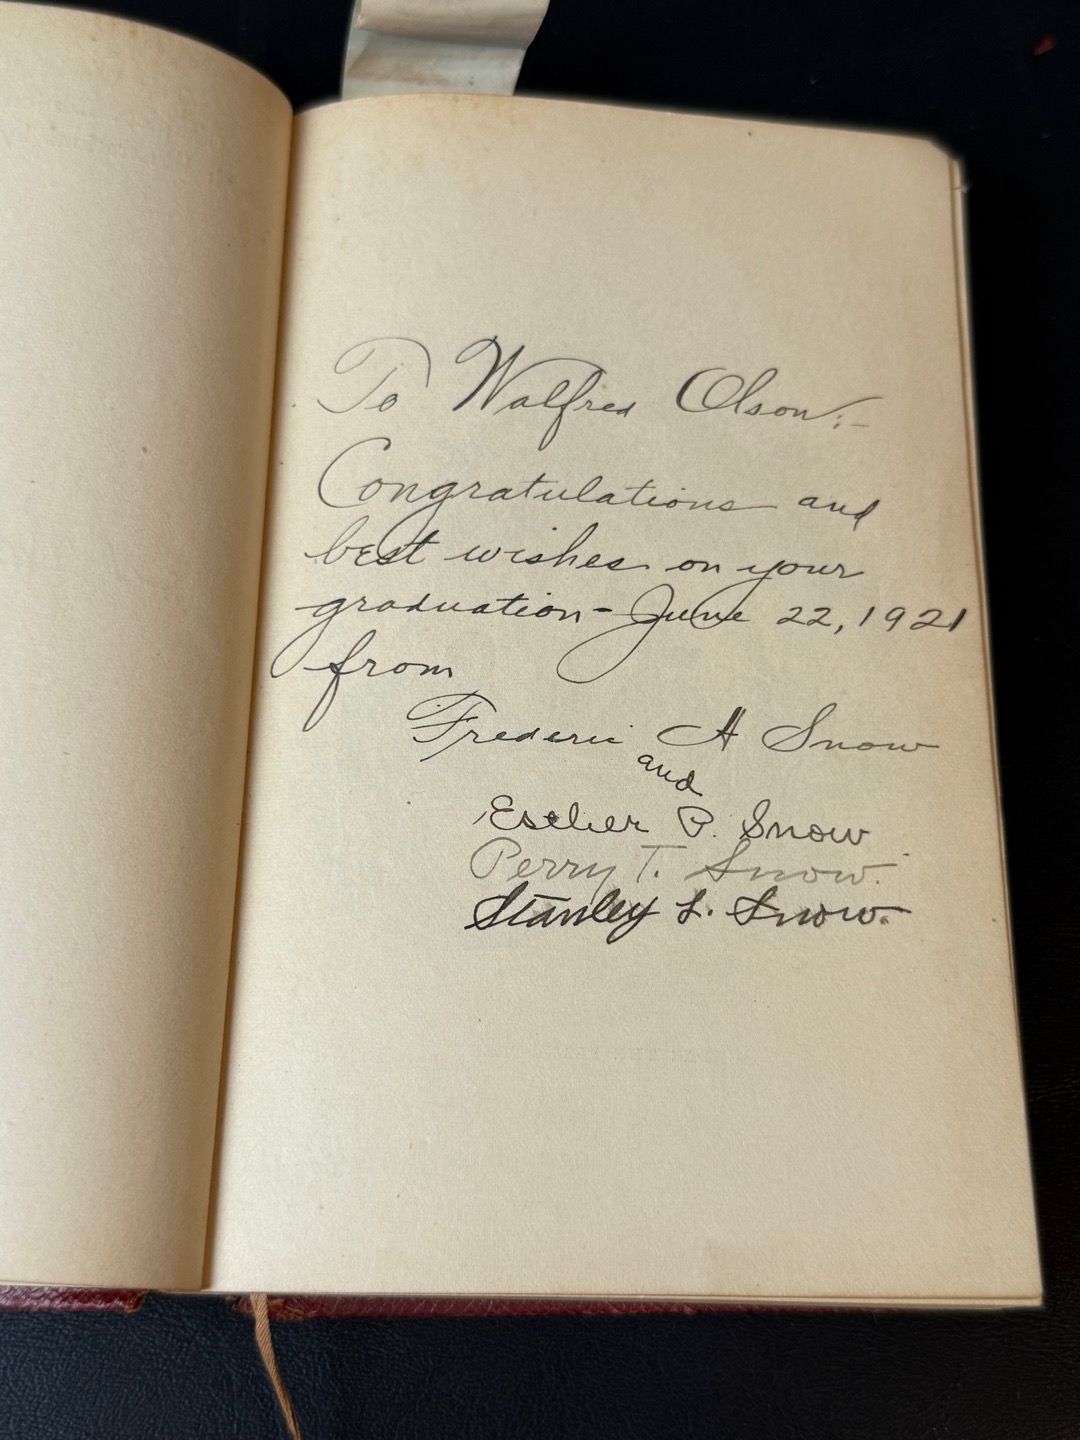 To Walfred Olson:-
Congratulations and
best wishes on your
graduation - June 22, 1921
from
Frederic A Snow
and
Esther P. Snow
Perry T. Snow.
Stanley L. Snow.